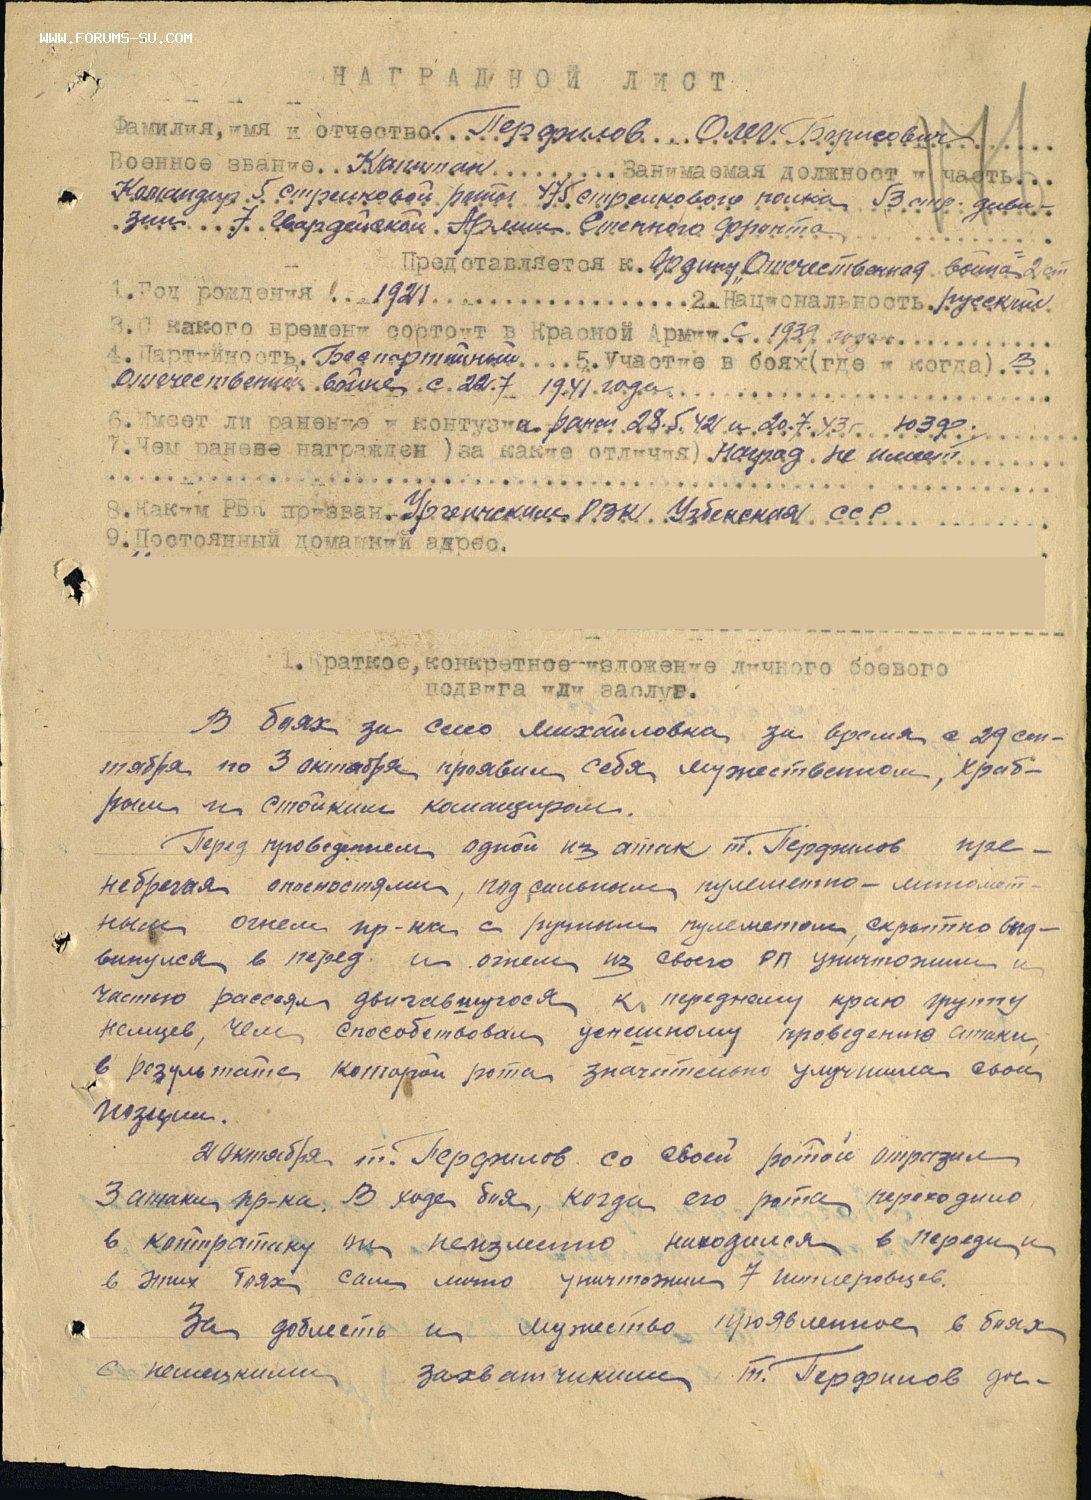 WWW.FORUMS-SU.COM
НАГРАДНОЙ ЛИСТ
Фамилия, имя и отчество..Перфилов...Олег Борисович
Военное звание..Капитан.........Занимаемая должност и часть...
Командир 5 стрелковой роты 475 стрелкового полка 53 стр. диви-
зии 7 Гвардейской Армии Степного фронта
Представляется к Ордену "Отечественная война" 2 ст
1.Год рождения !...1921.................2.Национальность русский
3.С какого времени состоит в Красной Армии.С. 1939 года
4.Партийность.Беспартийный....5.Участие в боях(где и когда).В
Отечественной войне с 22.7 1941 года
6.Имеет ли ранение и контузии ранен 28.5.42 и 20.7.43г. ЮЗФ.
7.Чем ранене награжден )за какие отличия) Наград не имеет
8.Каким РВК призван.Ургенчским РВК Узбекская ССР
9.Постоянный домашний адрес.
1.Краткое,конкретное изложение личного боевого
подвига или заслуг.
В боях за село Михайловка за время с 29 сен-
тября по 3 октября проявил себя мужественном, храб-
рым и стойким командиром.
Перед проведением одной из атак т. Перфилов пре-
небрегая опасностями, под сильным пулеметно-миномет-
ным огнем пр-ка с ручным пулеметом, скрытно выд-
винулся в перед и огнем из своего РП уничтожил и
частью рассеял двигавшуюся к переднему краю группу
немцев, чем способствовал успешному проведению атаки,
в результате которой рота значительно улучшила свои
позиции.
2 октября т. Перфилов со своей ротой отразил
3 атаки пр-ка. В ходе боя, когда его рота переходило
в контратаку он неизменно находился в переди и
в этих боях сам лично уничтожил 7 гитлеровцев.
За доблесть и мужество проявленное в боях
с немецкими захватчиками т. Перфилов дос-